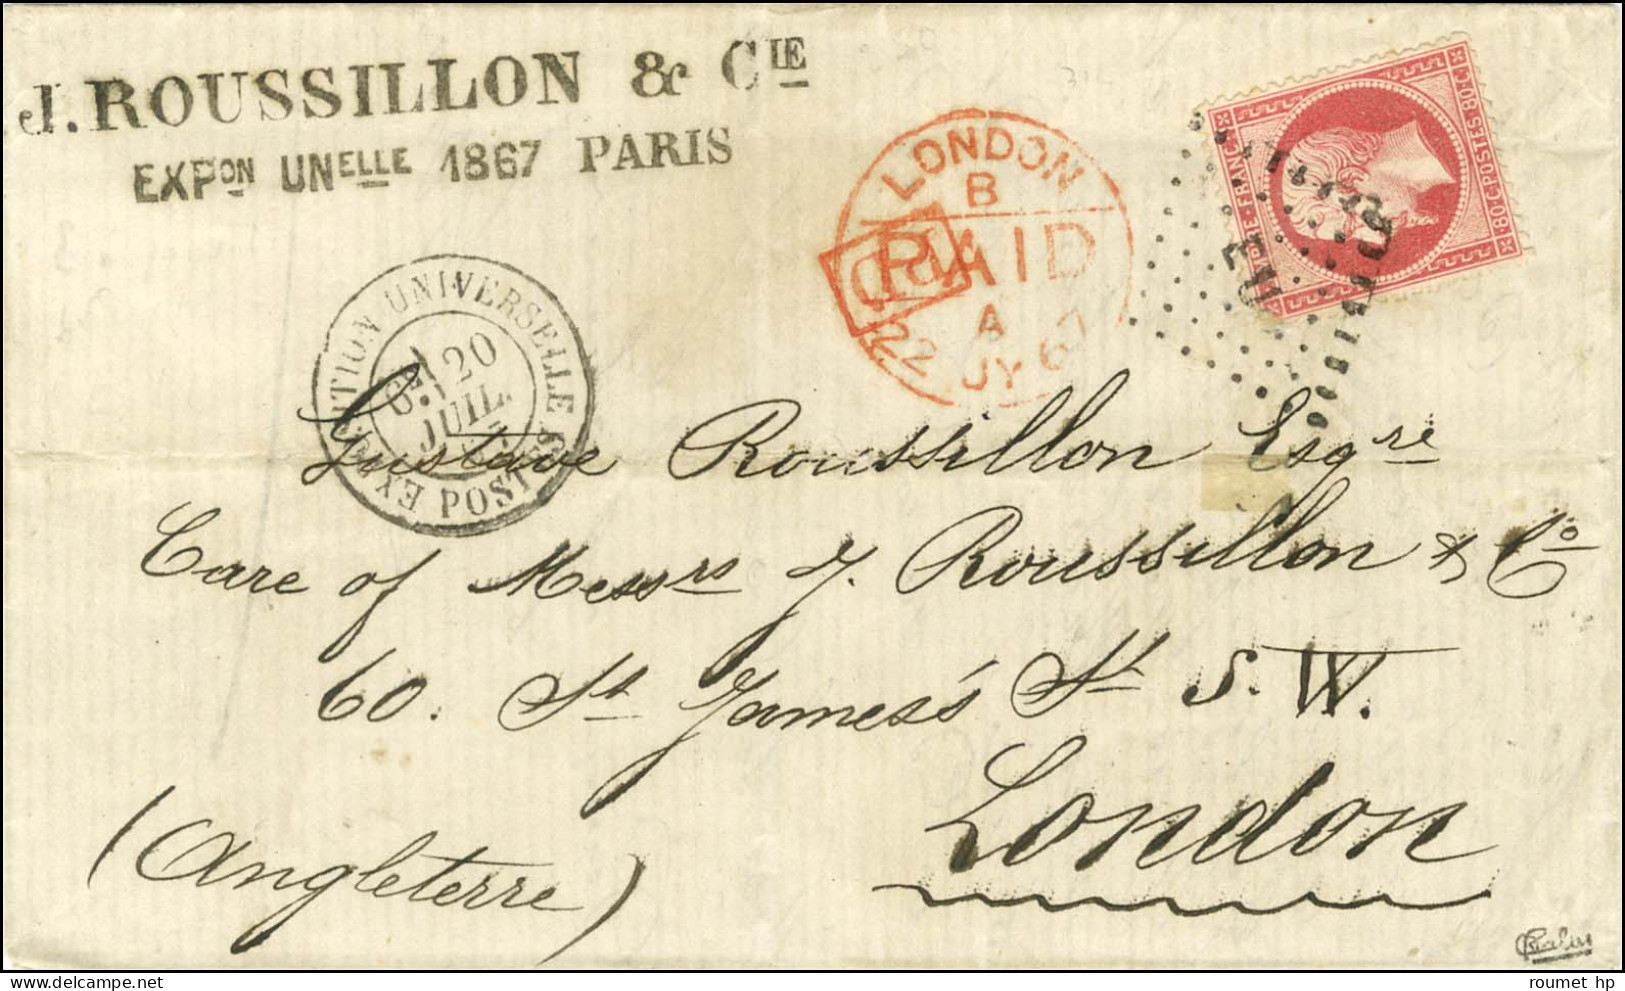 J. ROUSSILLON & CIE
EXPON UNELLE 1867 PARIS
LONDON
B
PAID
A
22 JY 67
PD
EMPIRE FRANC
80 C POSTES 80 C
EU
EXPOSITION UNIVERSELLE
6E 20
JUIL.
67
POSTES
Gustave Roussillon Esqre
Care of Messrs J. Roussillon & Co
60. St James's St S.W.
London
(Angleterre)
roumet hp